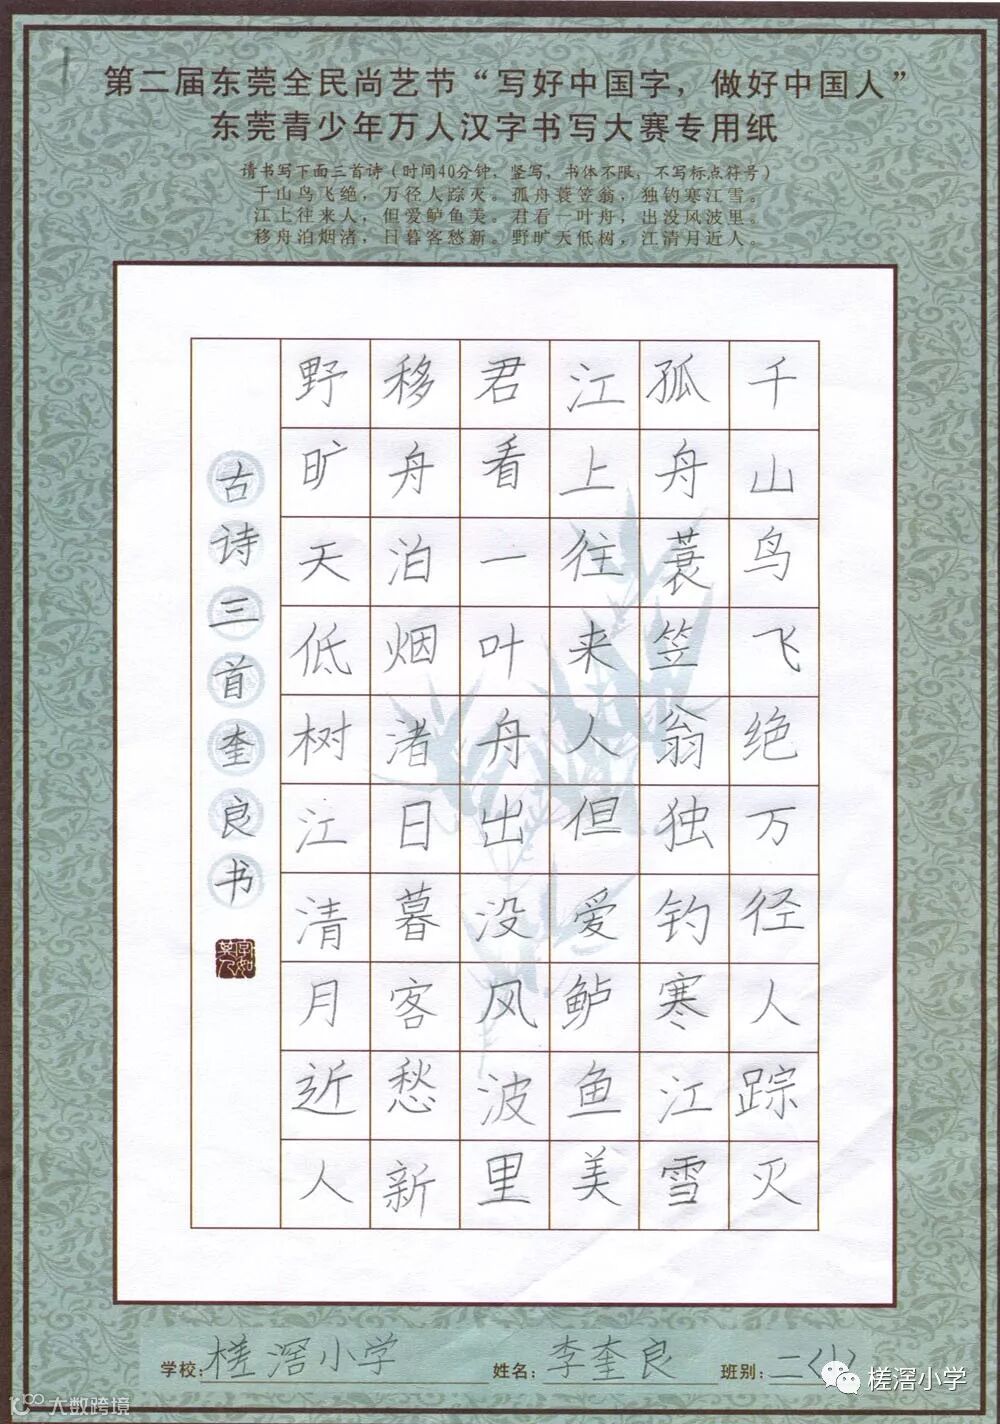 第二届东莞全民尚艺节“写好中国字，做好中国人”
东莞青少年万人汉字书写大赛专用纸
请书写下面三首诗（时间40分钟，竖写，书体不限，不写标点符号）
千山鸟飞绝，万径人踪灭。孤舟蓑笠翁，独钓寒江雪。
江上往来人，但爱鲈鱼美。君看一叶舟，出没风波里。
移舟泊烟渚，日暮客愁新。野旷天低树，江清月近人。
千山鸟飞绝万径人踪灭
孤舟蓑笠翁独钓寒江雪
江上往来人但爱鲈鱼美
君看一叶舟出没风波里
移舟泊烟渚日暮客愁新
野旷天低树江清月近人
古诗三首奎良书
字如其人
学校：槎滘小学 姓名：李奎良 班别：二
槎滘小学
大数跨境